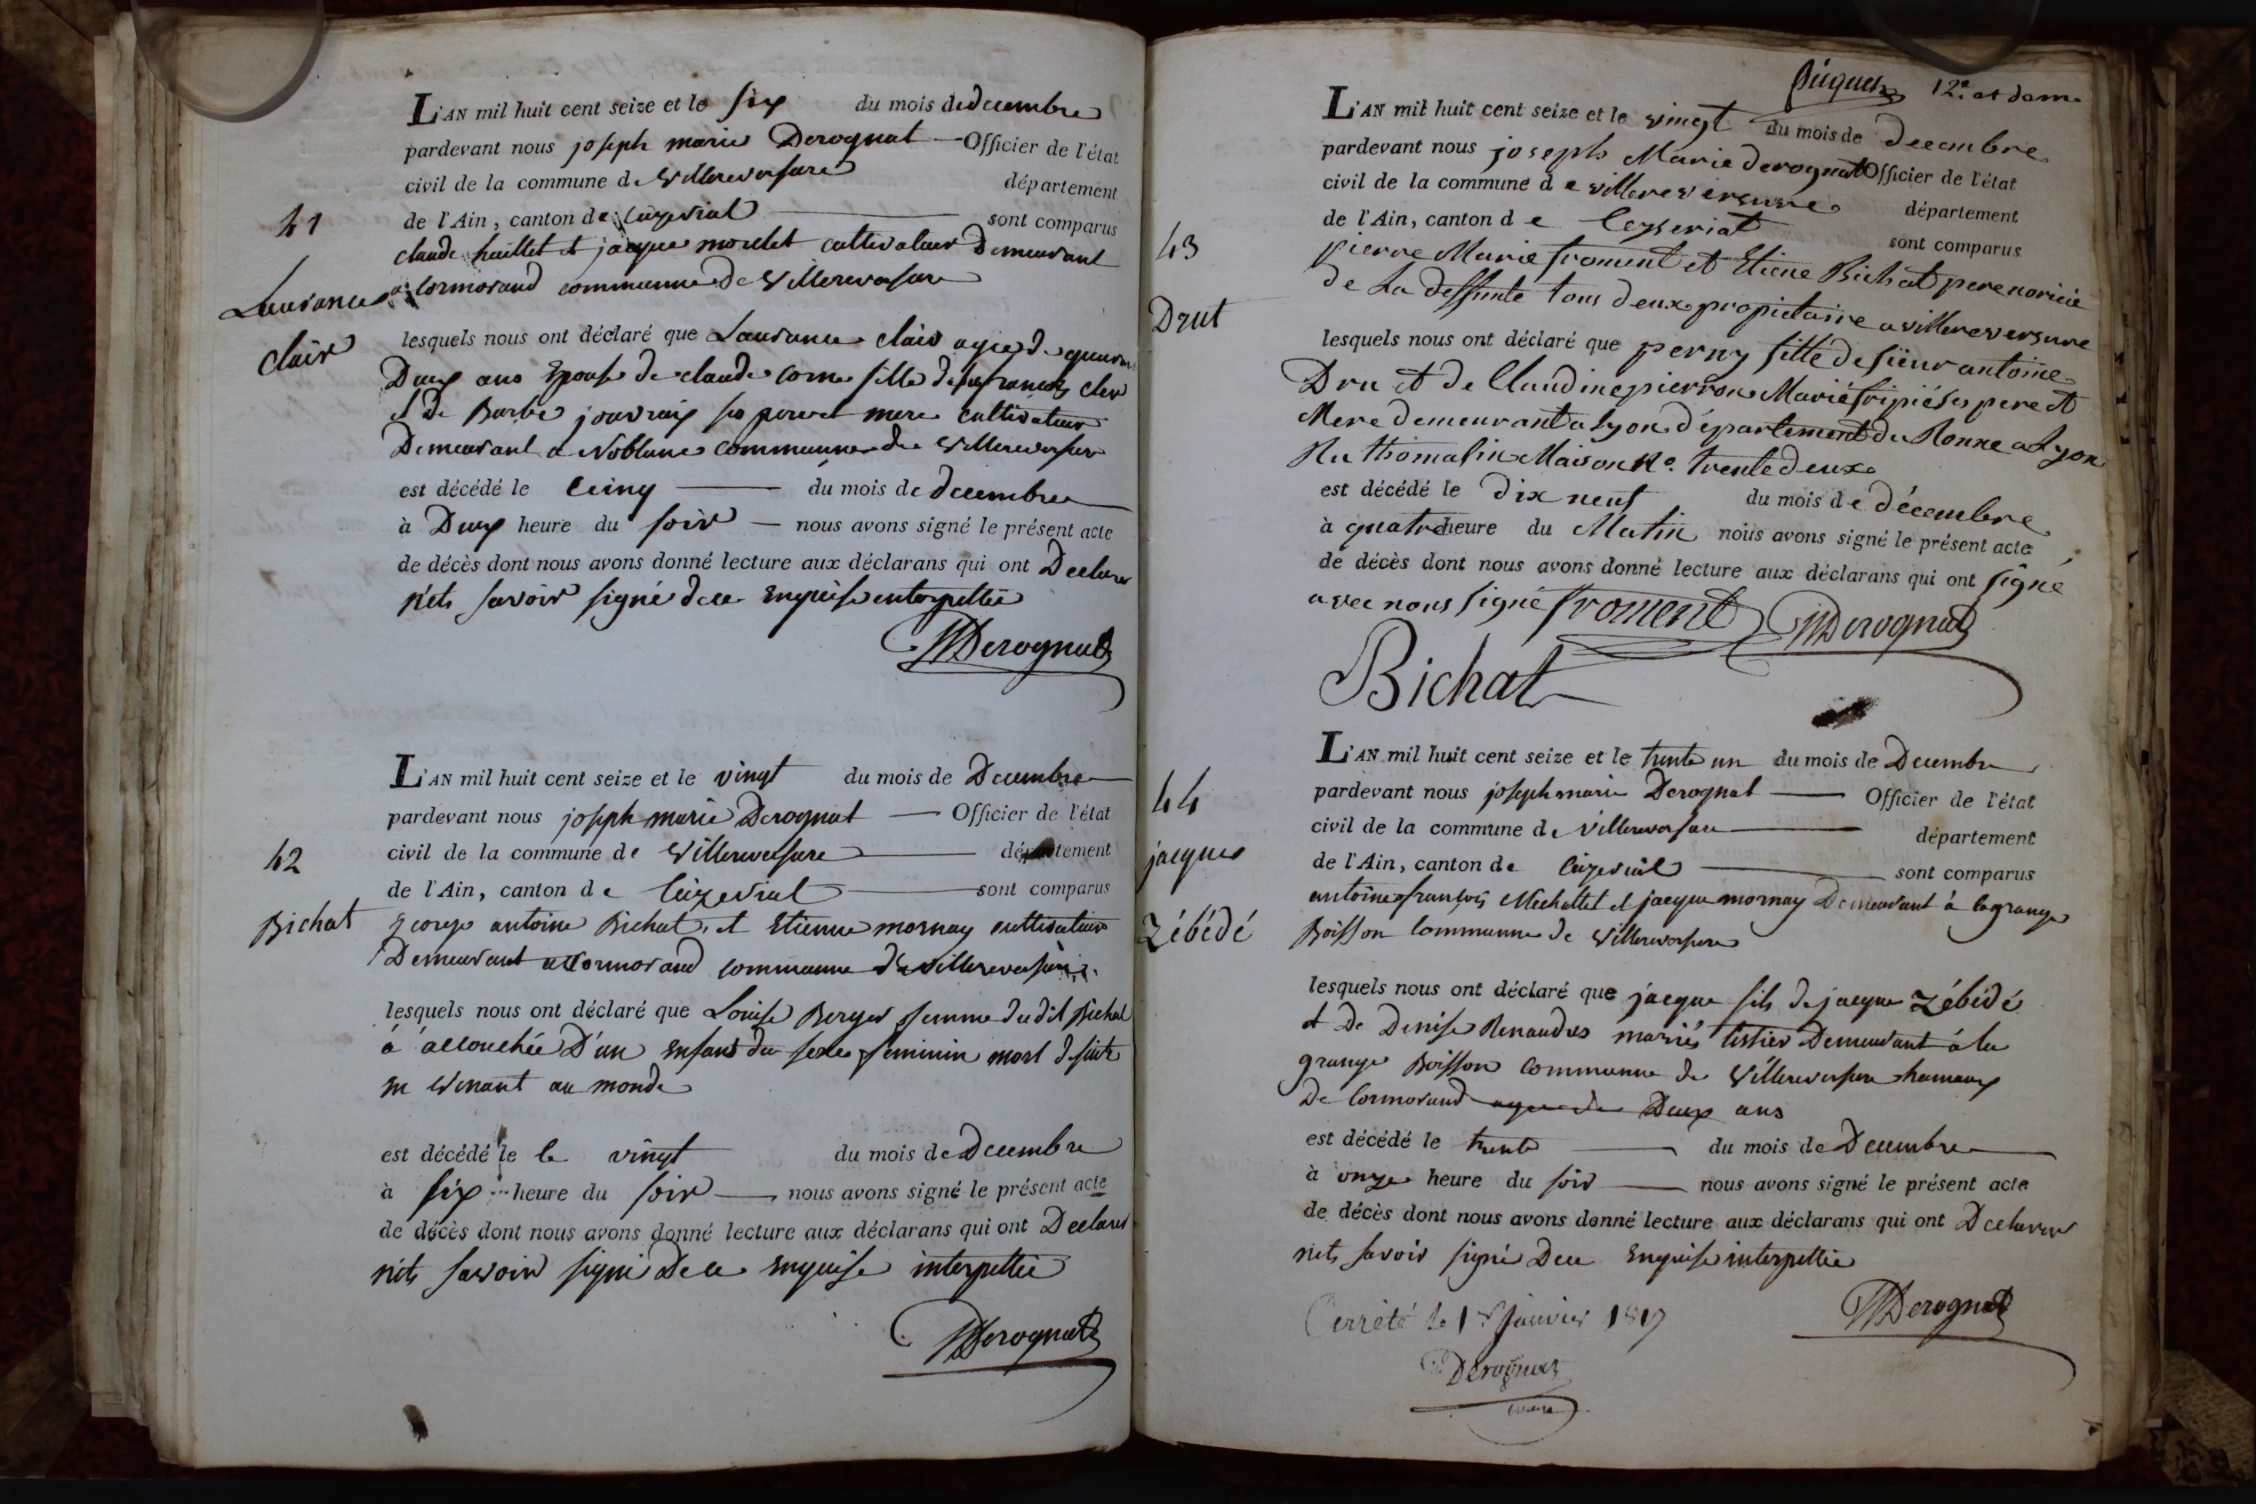 L'AN mil huit cent seize et le six du mois de decembre
pardevant nous joseph marie Derognat Officier de l'état
civil de la commune de Villereversure département
de l'Ain, canton de Ceizeriat sont comparus
41
claude huillet et jacque morelet cultivateur Demeurant
a Cormorand commune de Villereversure
Laurance
clair
lesquels nous ont déclaré que Laurance clair agée de quarante
Deux ans Epouse de claude come fille de françois cler
et De Barbe jouvray ses pere et mere cultivateur
Demeurant a Noblans commune de Villereversure
est décédé le Cinq du mois de decembre
à Deux heure du soir nous avons signé le présent acte
de décès dont nous avons donné lecture aux déclarans qui ont Declarer
nets savoir signé de ce Enquise interpellée
JMDerognat
L'AN mil huit cent seize et le vingt du mois de Decembre
pardevant nous joseph marie Derognat Officier de l'état
civil de la commune de Villereversure département
42
de l'Ain, canton de Ceizeriat sont comparus
Bichat
george antoine Bichat, et Etienne mornay cultivateur
Demeurant a Cormorand commune de Villereversure
lesquels nous ont déclaré que Louise Berger femme dudit Bichat
á áccouchée D'un enfant du sexe feminin mort de suite
en venant au monde
est décédé le le vingt du mois de Decembre
à six heure du soir nous avons signé le présent acte
de décès dont nous avons donné lecture aux déclarans qui ont Declarer
nets savoir signé De ce enquise interpellée
JMDerognat
12e et dern
L'AN mil huit cent seize et le vingt du mois de decembre
pardevant nous joseph Marie derognat Officier de l'état
civil de la commune d e villereversure département
de l'Ain, canton d e Ceyseriat sont comparus
43
pierre Marie froment et Etiene Bichat pere noricié
de La deffunte tous deux propietaire a villereversure
Drut
lesquels nous ont déclaré que perny fille de sieur antoine
Dru et de Claudine pierron Marié fripié ses pere et
Mere demeurant a Lyon département du Ronne a Lyon
Ru thomasin Maison No. trente deux
est décédé le dix neuf du mois de décembre
à quatre heure du Matin nous avons signé le présent acte
de décès dont nous avons donné lecture aux déclarans qui ont signé
avec nous signé froment JMDerognat
Bichat
L'AN mil huit cent seize et le trente un du mois de Decembre
pardevant nous joseph marie Derognat Officier de l'état
44
civil de la commune de Villereversure département
jacques
de l'Ain, canton de Ceizeriat sont comparus
antoine françois Mechallet et jacque mornay Demeurant à la grange
Zébédé
Boisson Commune de Villereversure
lesquels nous ont déclaré que jacque fils de jacque Zébédé
et De Denise Renaudres mariés tissier Demeurant á la
grange Boisson commune de Villereversure hameaux
De Cormorand agee de Deux ans
est décédé le trente du mois de Decembre
à onze heure du soir nous avons signé le présent acte
de décès dont nous avons donné lecture aux déclarans qui ont Declarer
nets savoir signé De ce Enquise interpellée
JMDerognat
arrété le 1er janvier 1817
Derognat
maire